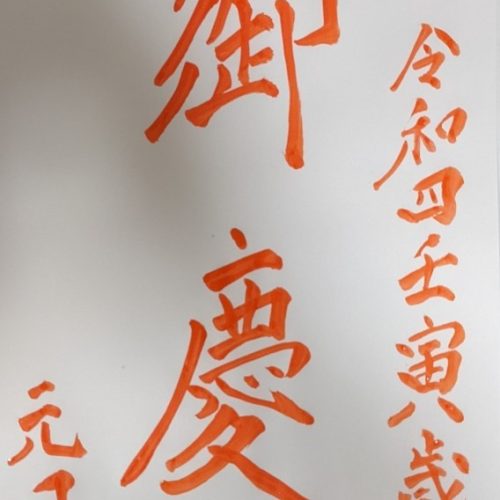 令和四壬寅歳
御慶
元